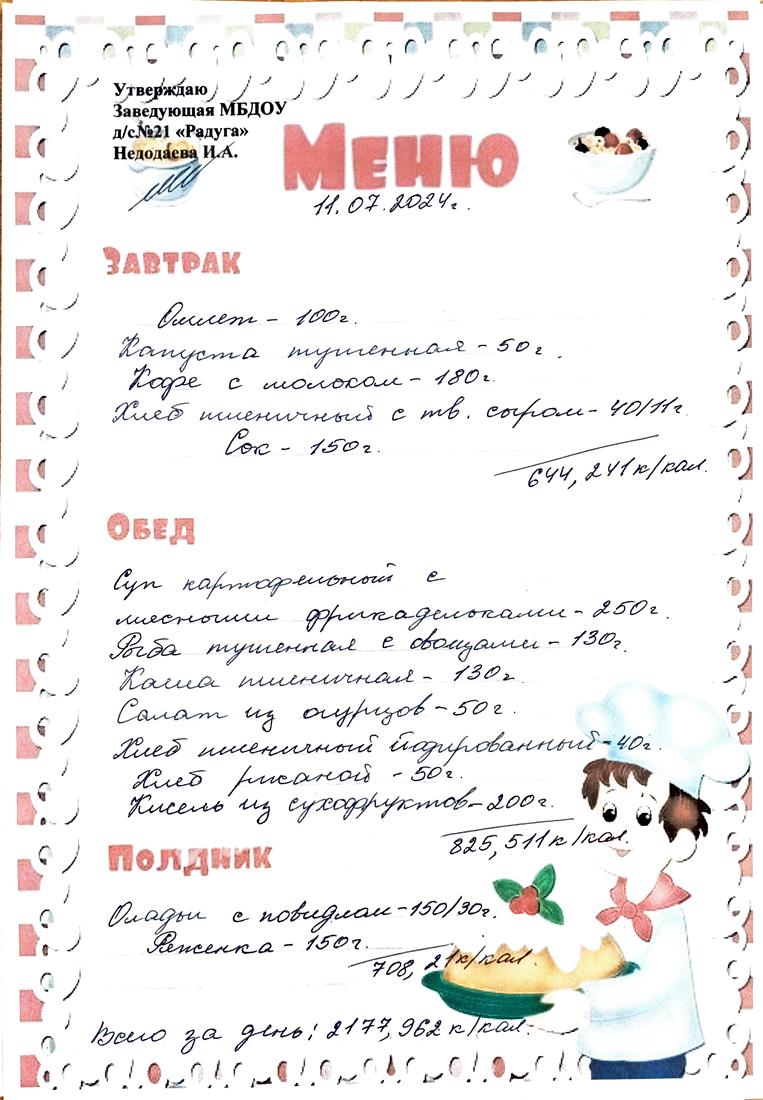 Утверждаю
Заведующая МБДОУ
д/с№21 «Радуга»
Недодаева И.А.
Меню
11.07.2024г.
Завтрак
Омлет - 100г.
Капуста тушенная - 50г.
Кофе с молоком - 180г.
Хлеб пшеничный с тв. сыром - 40/11г
Сок - 150г.
644, 241 к/кал.
Обед
Суп картофельный с
мясными фрикадельками - 250г.
Рыба тушенная с овощами - 130г.
Каша пшеничная - 130г
Салат из огурцов - 50г.
Хлеб пшеничный йодированный - 40г.
Хлеб ржаной - 50г.
Кисель из сухофруктов - 200г.
825, 511 к/кал.
Полдник
Оладьи с повидлом - 150/30г.
Ряженка - 150г.
708, 21 к/кал.
Всего за день: 2177, 962 к/кал.